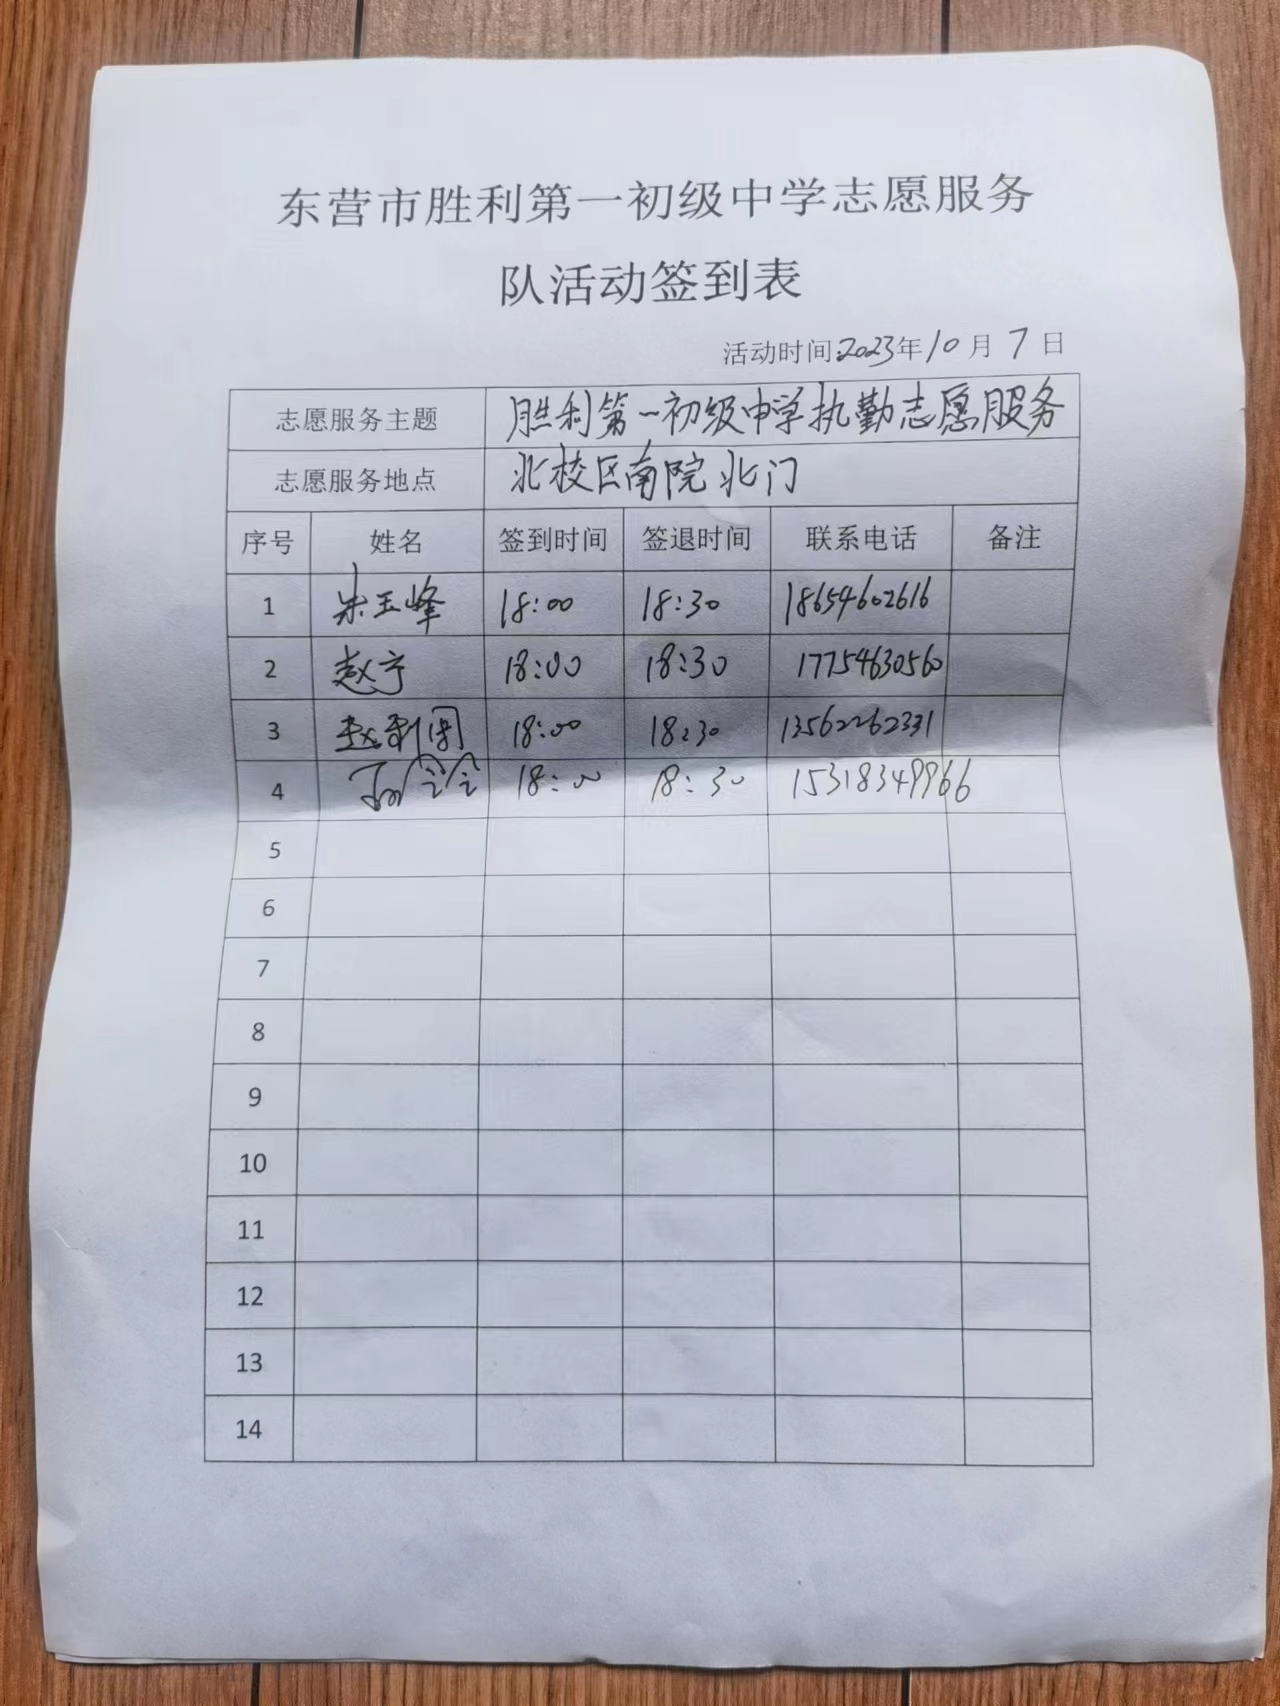 东营市胜利第一初级中学志愿服务
队活动签到表
活动时间2023年10月7日
志愿服务主题 胜利第一初级中学执勤志愿服务
志愿服务地点 北校区南院北门
序号 姓名 签到时间 签退时间 联系电话 备注
1 朱玉峰 18:00 18:30 18654602616
2 赵宁 18:00 18:30 17754630560
3 18:00 18:30 13562262331
4 18:00 18:30 15318349966
5
6
7
8
9
10
11
12
13
14